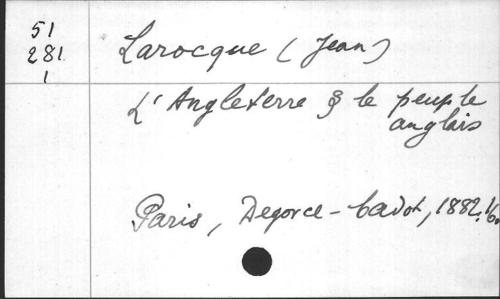 51
281
1
Larocque (Jean)
L'Angleterre & le peuple
anglais
Paris, Degorce-Cadot, 1882. 16.